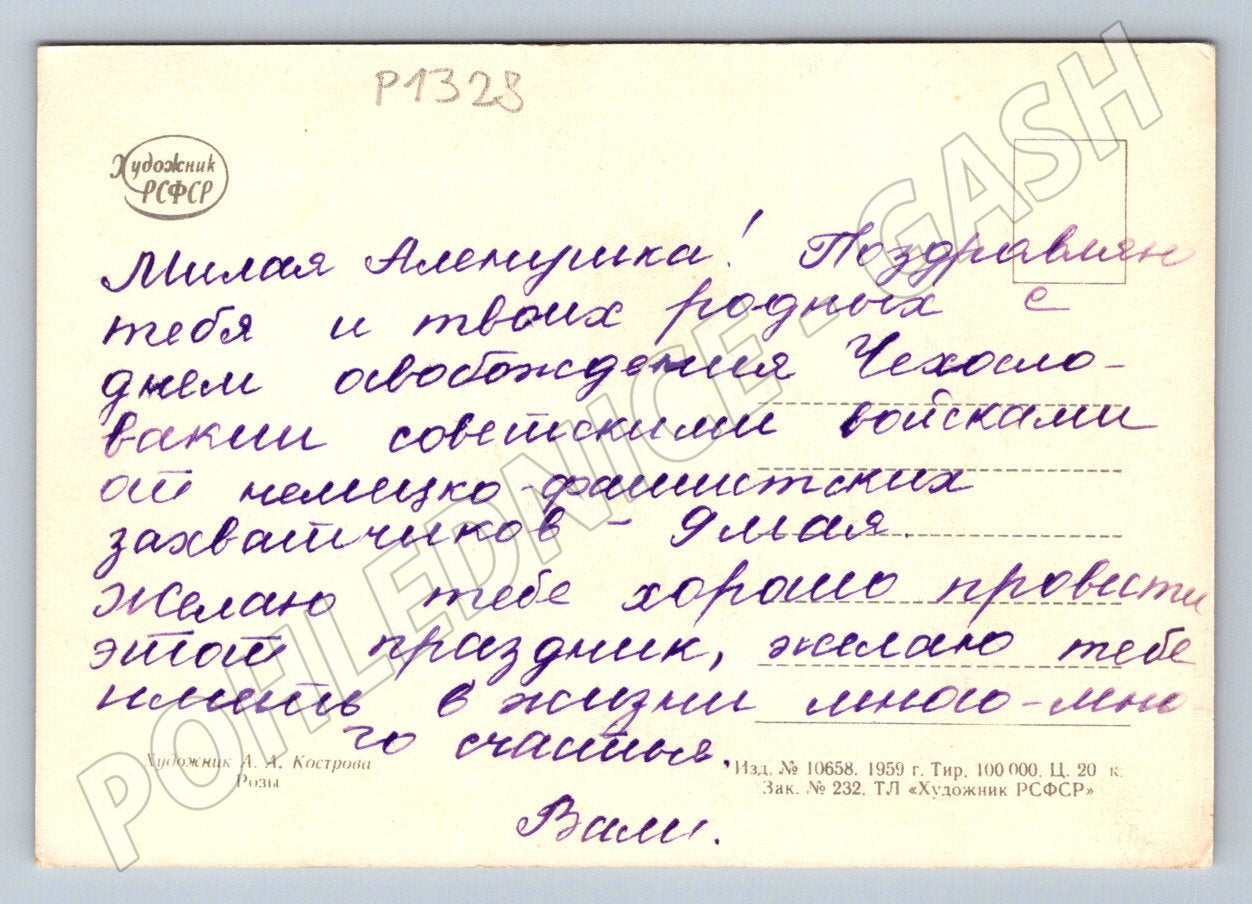 P1328
Художник
РСФСР
Милая Аленушка! Поздравляю
тебя и твоих родных с
днем освобождения Чехосло-
вакии советскими войсками
от немецко-фашистских
захватчиков – 9 мая.
Желаю тебе хорошо провести
этот праздник, желаю тебе
иметь в жизни много-мно-
го счастья.
Художник А. А. Кострова
Розы
Изд. № 10658. 1959 г. Тир. 100 000. Ц. 20 к.
Зак. № 232. ТЛ «Художник РСФСР»
POHLEDNICE - GASH